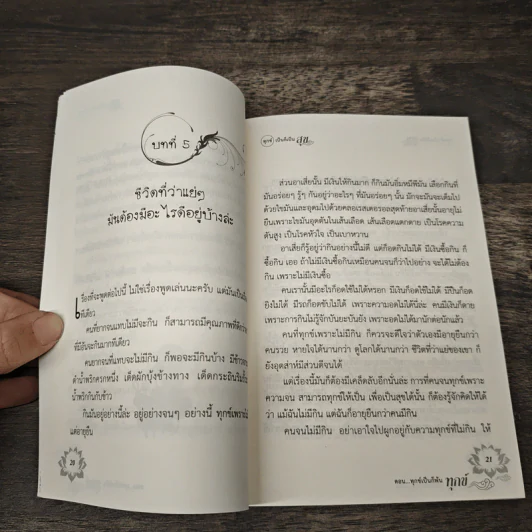 บทที่ 5
ชีวิตที่ว่าแย่ๆ
มันต้องมีอะไรดีอยู่บ้างล่ะ
เรื่องที่จะพูดต่อไปนี้ ไม่ใช่เรื่องพูดเล่นนะครับ แต่มันเป็น
ทีเดียว
คนที่ยากจนแทบไม่มีจะกิน ก็สามารถมีคุณภาพที่ดีกว่า
ที่มีอันจะกินมากทีเดียว
คนยากจนที่แทบจะไม่มีกิน ก็พอจะมีกินบ้าง
ตำน้ำพริกครกหนึ่ง เด็ดผักบุ้งข้างทาง เด็ดกระถินริม
น้ำพริกกินกับข้าว
กินมันอยู่อย่างนี้ล่ะ อยู่อย่างจนๆ อย่างนี้ ทุกข์เพราะ
แต่อายุยืน
20
ทุกข์ เป็นก็เป็น สุข
ส่วนอาเสี่ยนั้น มีเงินให้กินมาก ก็กินมันอิ่มหมีพีมัน เลือกกินที่
มันอร่อยๆ รู้ๆ กันอยู่ว่าอะไรๆ ที่มันอร่อยๆ นั้น มักจะมันจะเต็มไป
ด้วยไขมันและอุดมไปด้วยคอเลรสเตอรอลสุดท้ายอาเสี่ยนั้นอายุไม่
ยืนเพราะไขมันอุดตันในเส้นเลือด เส้นเลือดแตกตาย เป็นโรคความ
ดันสูง เป็นโรคหัวใจ เป็นเบาหวาน
อาเสี่ยก็รู้อยู่ว่ากินอย่างนี้ไม่ดี แต่ก็อดกินไม่ได้ มีเงินซื้อกิน ก็
ซื้อกิน เออ ถ้าไม่มีเงินซื้อกินเหมือนคนจนก็ว่าไปอย่าง จะได้ไม่ต้อง
กิน เพราะไม่มีเงินซื้อ
คนเรานั้นมีอะไรก็อดใช้ไม่ได้หรอก มีเงินก็อดใช้ไม่ได้ มีปืนก็อด
ยิงไม่ได้ มีรถก็อดขับไม่ได้ เพราะความอดไม่ได้นี่ล่ะ คนมีเงินก็ตาย
เพราะการกินไม่รู้จักบันยะบันยัง เพราะอดไม่ได้มานักต่อนักแล้ว
คนที่ทุกข์เพราะไม่มีกิน ก็ควรจะดีใจว่าตัวเองมีอายุยืนกว่า
คนรวย หายใจได้นานกว่า ดูโลกได้นานกว่า ชีวิตที่ว่าแย่ของเขา ก็
ยังอุตส่าห์มีส่วนดีจนได้
แต่เรื่องนี้มันก็ต้องมีเคล็ดลับอีกนั่นล่ะ การที่คนจนทุกข์เพราะ
ความจน สามารถทุกข์ให้เป็น เพื่อเป็นสุขได้นั้น ก็ต้องรู้จักคิดให้ได้
ว่า แม้ฉันไม่มีกิน แต่ฉันก็อายุยืนกว่าคนมีกิน
คนจนไม่มีกิน อย่าเอาใจไปผูกอยู่กับความทุกข์ที่ไม่กิน ให้
ตอน...ทุกข์เป็นก็พ้น ทุกข์
21